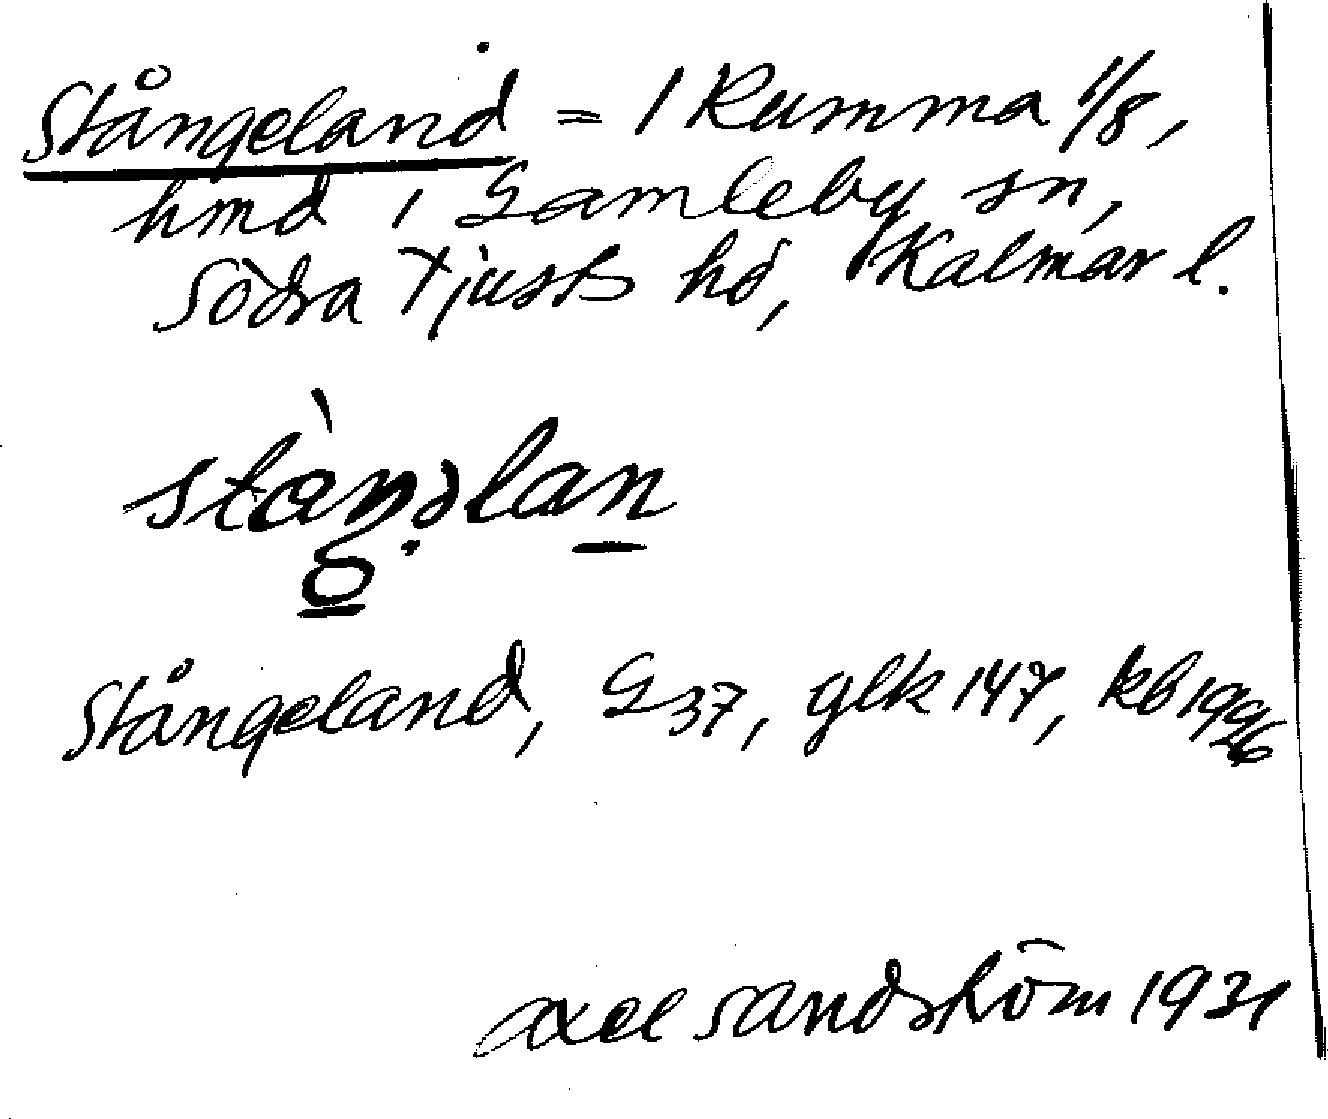 Stångeland = 1 Rumma 1/8,
hmd i Gamleby sn,
Södra Tjusts hd, Kalmar l.
Stångeland, G37, glk 147, kb 1996
Axel Sandström 1931